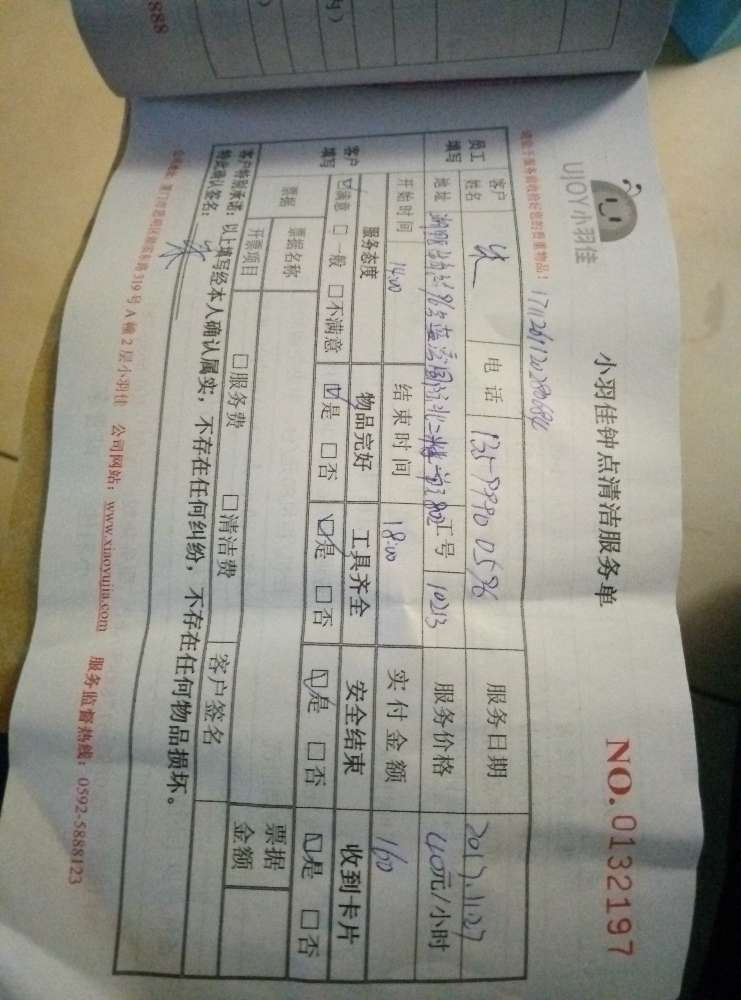 888
内)
UJOY小羽佳
小羽佳钟点清洁服务单
NO.0132197
请您于服务前收捡好您的贵重物品!
员工填写
客户姓名
朱
电话
服务日期
2017.11.27
地址
工号
10213
服务价格
40元/小时
开始时间
14:00
结束时间
18:00
实付金额
160
客户填写
服务态度
物品完好
工具齐全
安全结束
收到卡片
☑满意 □一般 □不满意
☑是 □否
☑是 □否
☑是 □否
☑是 □否
票据
票据名称
开票项目
□服务费 □清洁费
票据金额
客户签名
客户特别承诺:以上填写经本人确认属实,不存在任何纠纷,不存在任何物品损坏。
特此确认签名:
朱
319号A幢2层小羽佳 公司网站:www.xiaoyujia.com 服务监督热线:0592-5888123